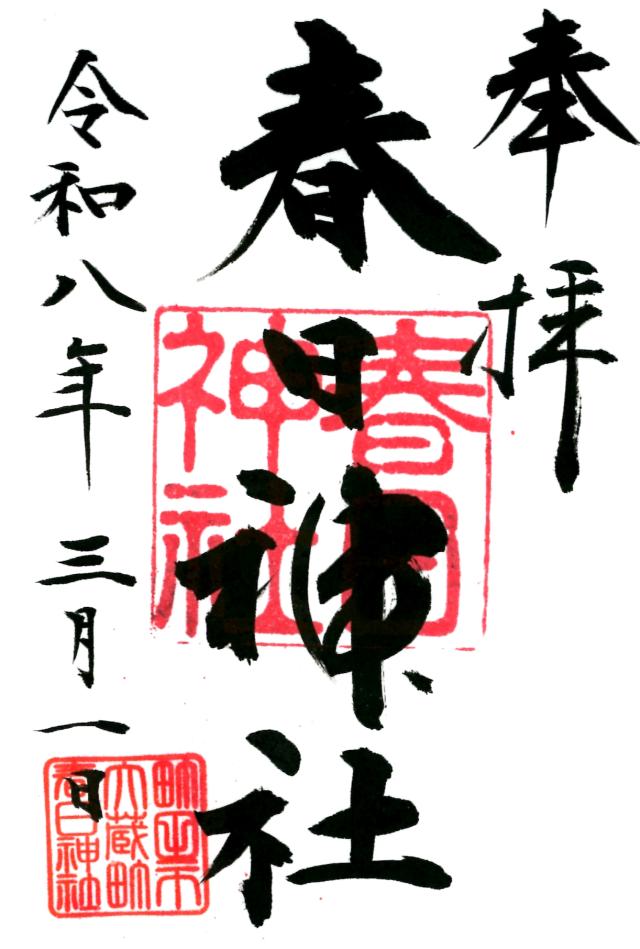 奉拝
春日神社
令和八年 三月一日
春日
神社
大蔵
春日神社